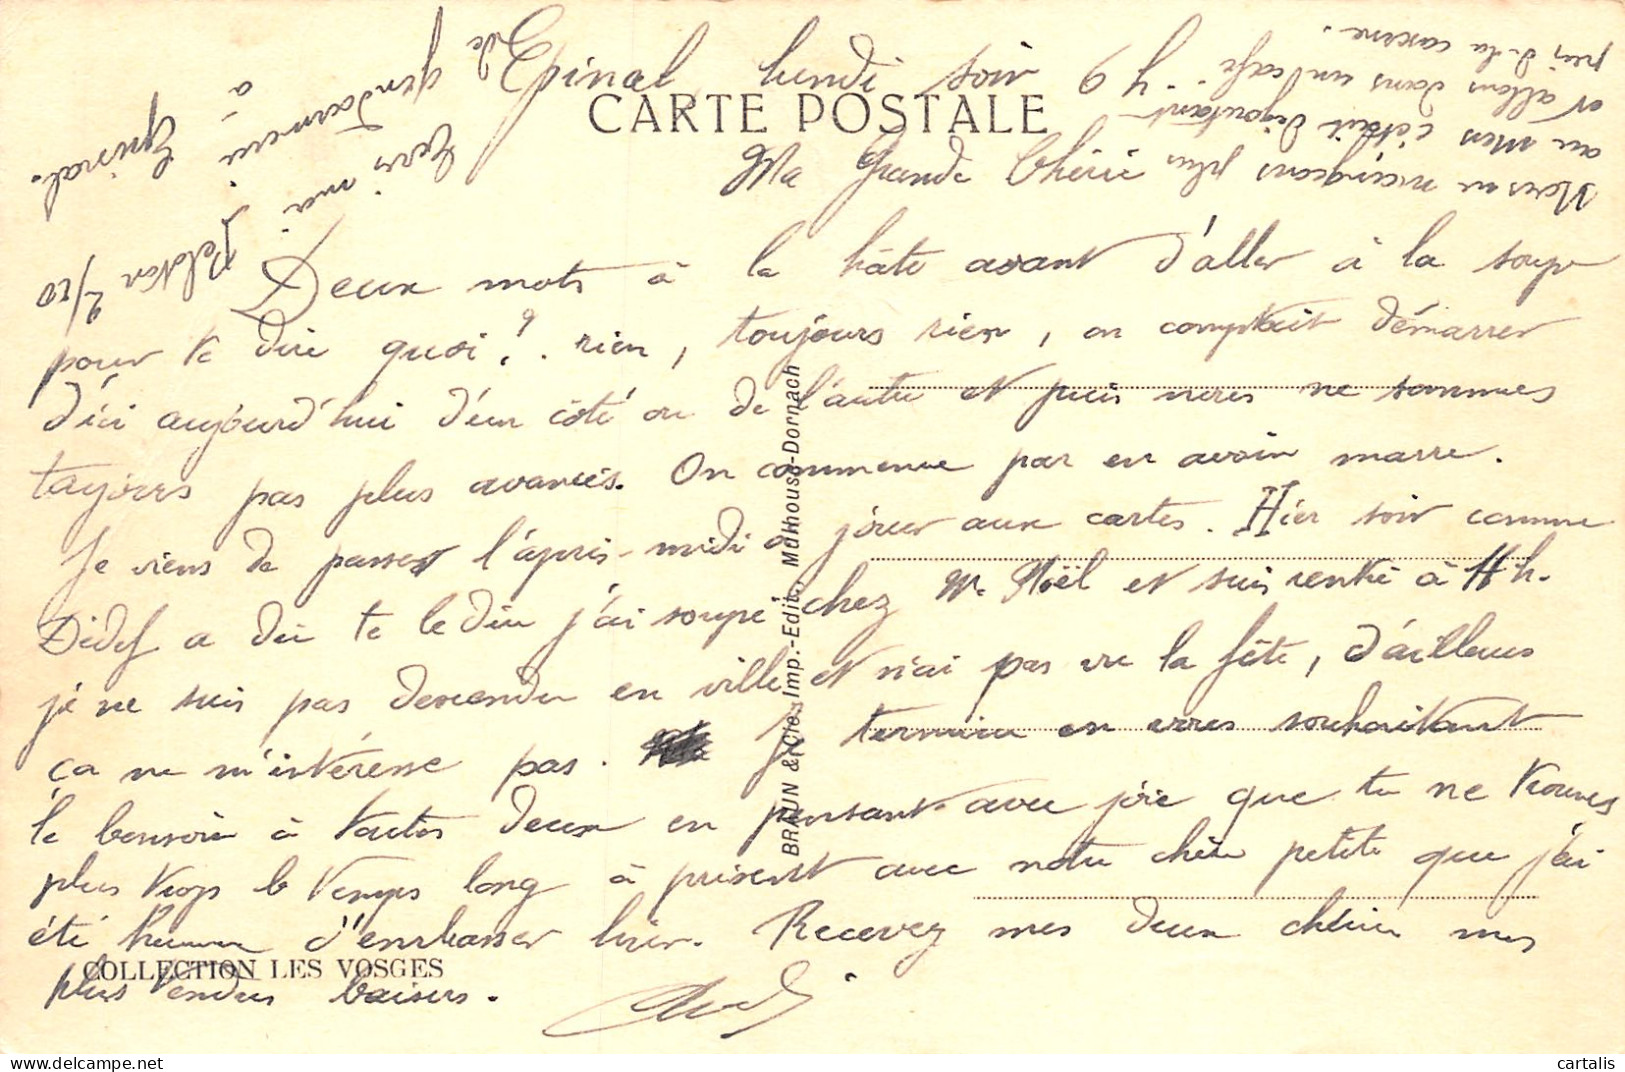 Epinal lundi soir 9 h
CARTE POSTALE
Ma Grande Chérie
Deux mots à la hâte avant d'aller à la soupe
pour te dire quoi ? . rien, toujours rien, on comptait démarrer
d'ici aujourd'hui d'un côté ou de l'autre et puis nous ne sommes
toujours pas plus avancés. On commence par en avoir marre.
Je viens de passer l'après-midi à jouer aux cartes. Hier soir comme
Didef a dû te le dire j'ai soupé chez Mr Noël et suis rentré à 11 h.
je ne suis pas descendu en ville et n'ai pas vu la fête, d'ailleurs
ça ne m'intéresse pas. Je termine en vous souhaitant
le bonsoir à toutes deux en pensant avec joie que tu ne trouves
plus trop le temps long à présent avec notre chère petite que j'ai
été heureux d'embrasser hier. Recevez mes deux chéries mes
plus tendres baisers.
COLLECTION LES VOSGES
BRAUN & Cie, Imp.-Edit., Mulhouse-Dornach
Nous ne mangeons plus
au Mess c'était dégoutant
et allons dans un café
près de la caserne.
Ecris moi
Peloton 2/20
Gde gendarmerie
à
Epinal.